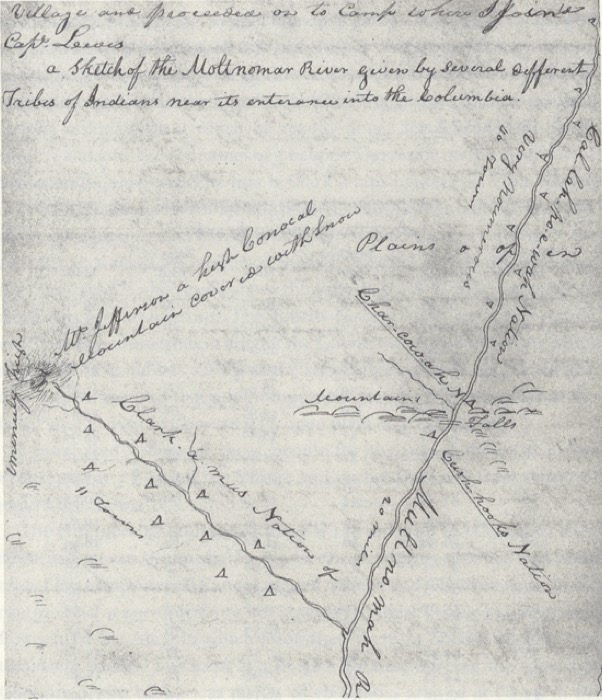 Village and proceeded on to Camp where I Joind
Capt. Lewis
a Sketch of the Moltnomar River given by Several different
Tribes of Indians near its enterance into the Columbia.
Cal lah po-e-wah Nation
Very Noumerous
40 Towns
Plains & open
Mt. Jefferson a high Conocal
Mountain covered with Snow
imencely high
Char-cowah N
Mountains
Falls
Cush-hooks Nation
Clark a mus Nation of
11 Towns
Mult no mah R
20 miles